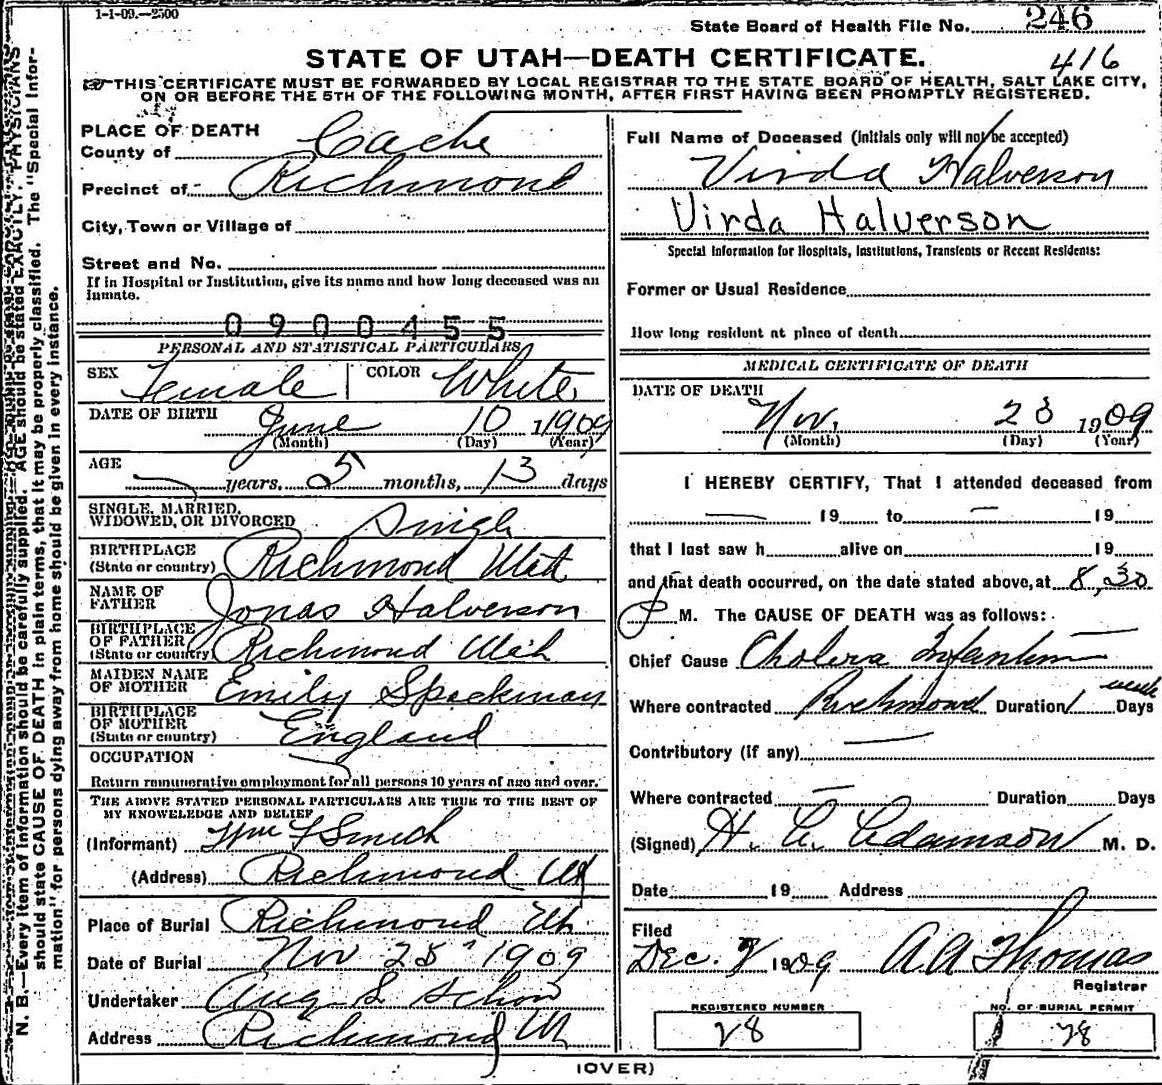 1-1-09.—2500
State Board of Health File No. 246
STATE OF UTAH—DEATH CERTIFICATE.
416
THIS CERTIFICATE MUST BE FORWARDED BY LOCAL REGISTRAR TO THE STATE BOARD OF HEALTH, SALT LAKE CITY,
ON OR BEFORE THE 5TH OF THE FOLLOWING MONTH, AFTER FIRST HAVING BEEN PROMPTLY REGISTERED.
N. B.—Every item of information should be carefully supplied. AGE should be stated EXACTLY. PHYSICIANS
should state CAUSE OF DEATH in plain terms, that it may be properly classified. The "Special Infor-
mation" for persons dying away from home should be given in every instance.
PLACE OF DEATH
County of Cache
Precinct of Richmond
City, Town or Village of
Street and No.
If in Hospital or Institution, give its name and how long deceased was an
inmate.
0900455
PERSONAL AND STATISTICAL PARTICULARS
SEX Female COLOR White
DATE OF BIRTH June 10 1909
(Month) (Day) (Year)
AGE
years, 5 months, 13 days
SINGLE, MARRIED,
WIDOWED, OR DIVORCED Single
BIRTHPLACE
(State or country) Richmond Utah
NAME OF
FATHER Jonas Halverson
BIRTHPLACE
OF FATHER
(State or country) Richmond Utah
MAIDEN NAME
OF MOTHER Emily Spackman
BIRTHPLACE
OF MOTHER
(State or country) England
OCCUPATION
Return remunerative employment for all persons 10 years of age and over.
THE ABOVE STATED PERSONAL PARTICULARS ARE TRUE TO THE BEST OF
MY KNOWLEDGE AND BELIEF
(Informant) Wm F Smith
(Address) Richmond Ut
Place of Burial Richmond Ut.
Date of Burial Nov 25" 1909
Undertaker Aug S Schow
Address Richmond Ut
Full Name of Deceased (Initials only will not be accepted)
Virda Halverson
Virda Halverson
Special Information for Hospitals, Institutions, Transients or Recent Residents:
Former or Usual Residence
How long resident at place of death
MEDICAL CERTIFICATE OF DEATH
DATE OF DEATH
Nov. 23 1909
(Month) (Day) (Year)
I HEREBY CERTIFY, That I attended deceased from
19 to 19
that I last saw h alive on 19
and that death occurred, on the date stated above, at 8,30
P M. The CAUSE OF DEATH was as follows:
Chief Cause Cholera Infantum
Where contracted Richmond Duration 1 week Days
Contributory (if any)
Where contracted Duration Days
(Signed) H. C. Adamson M. D.
Date 19 Address
Filed
Dec. 1909 A A Thomas
Registrar
REGISTERED NUMBER
28
NO. OF BURIAL PERMIT
28
(OVER)